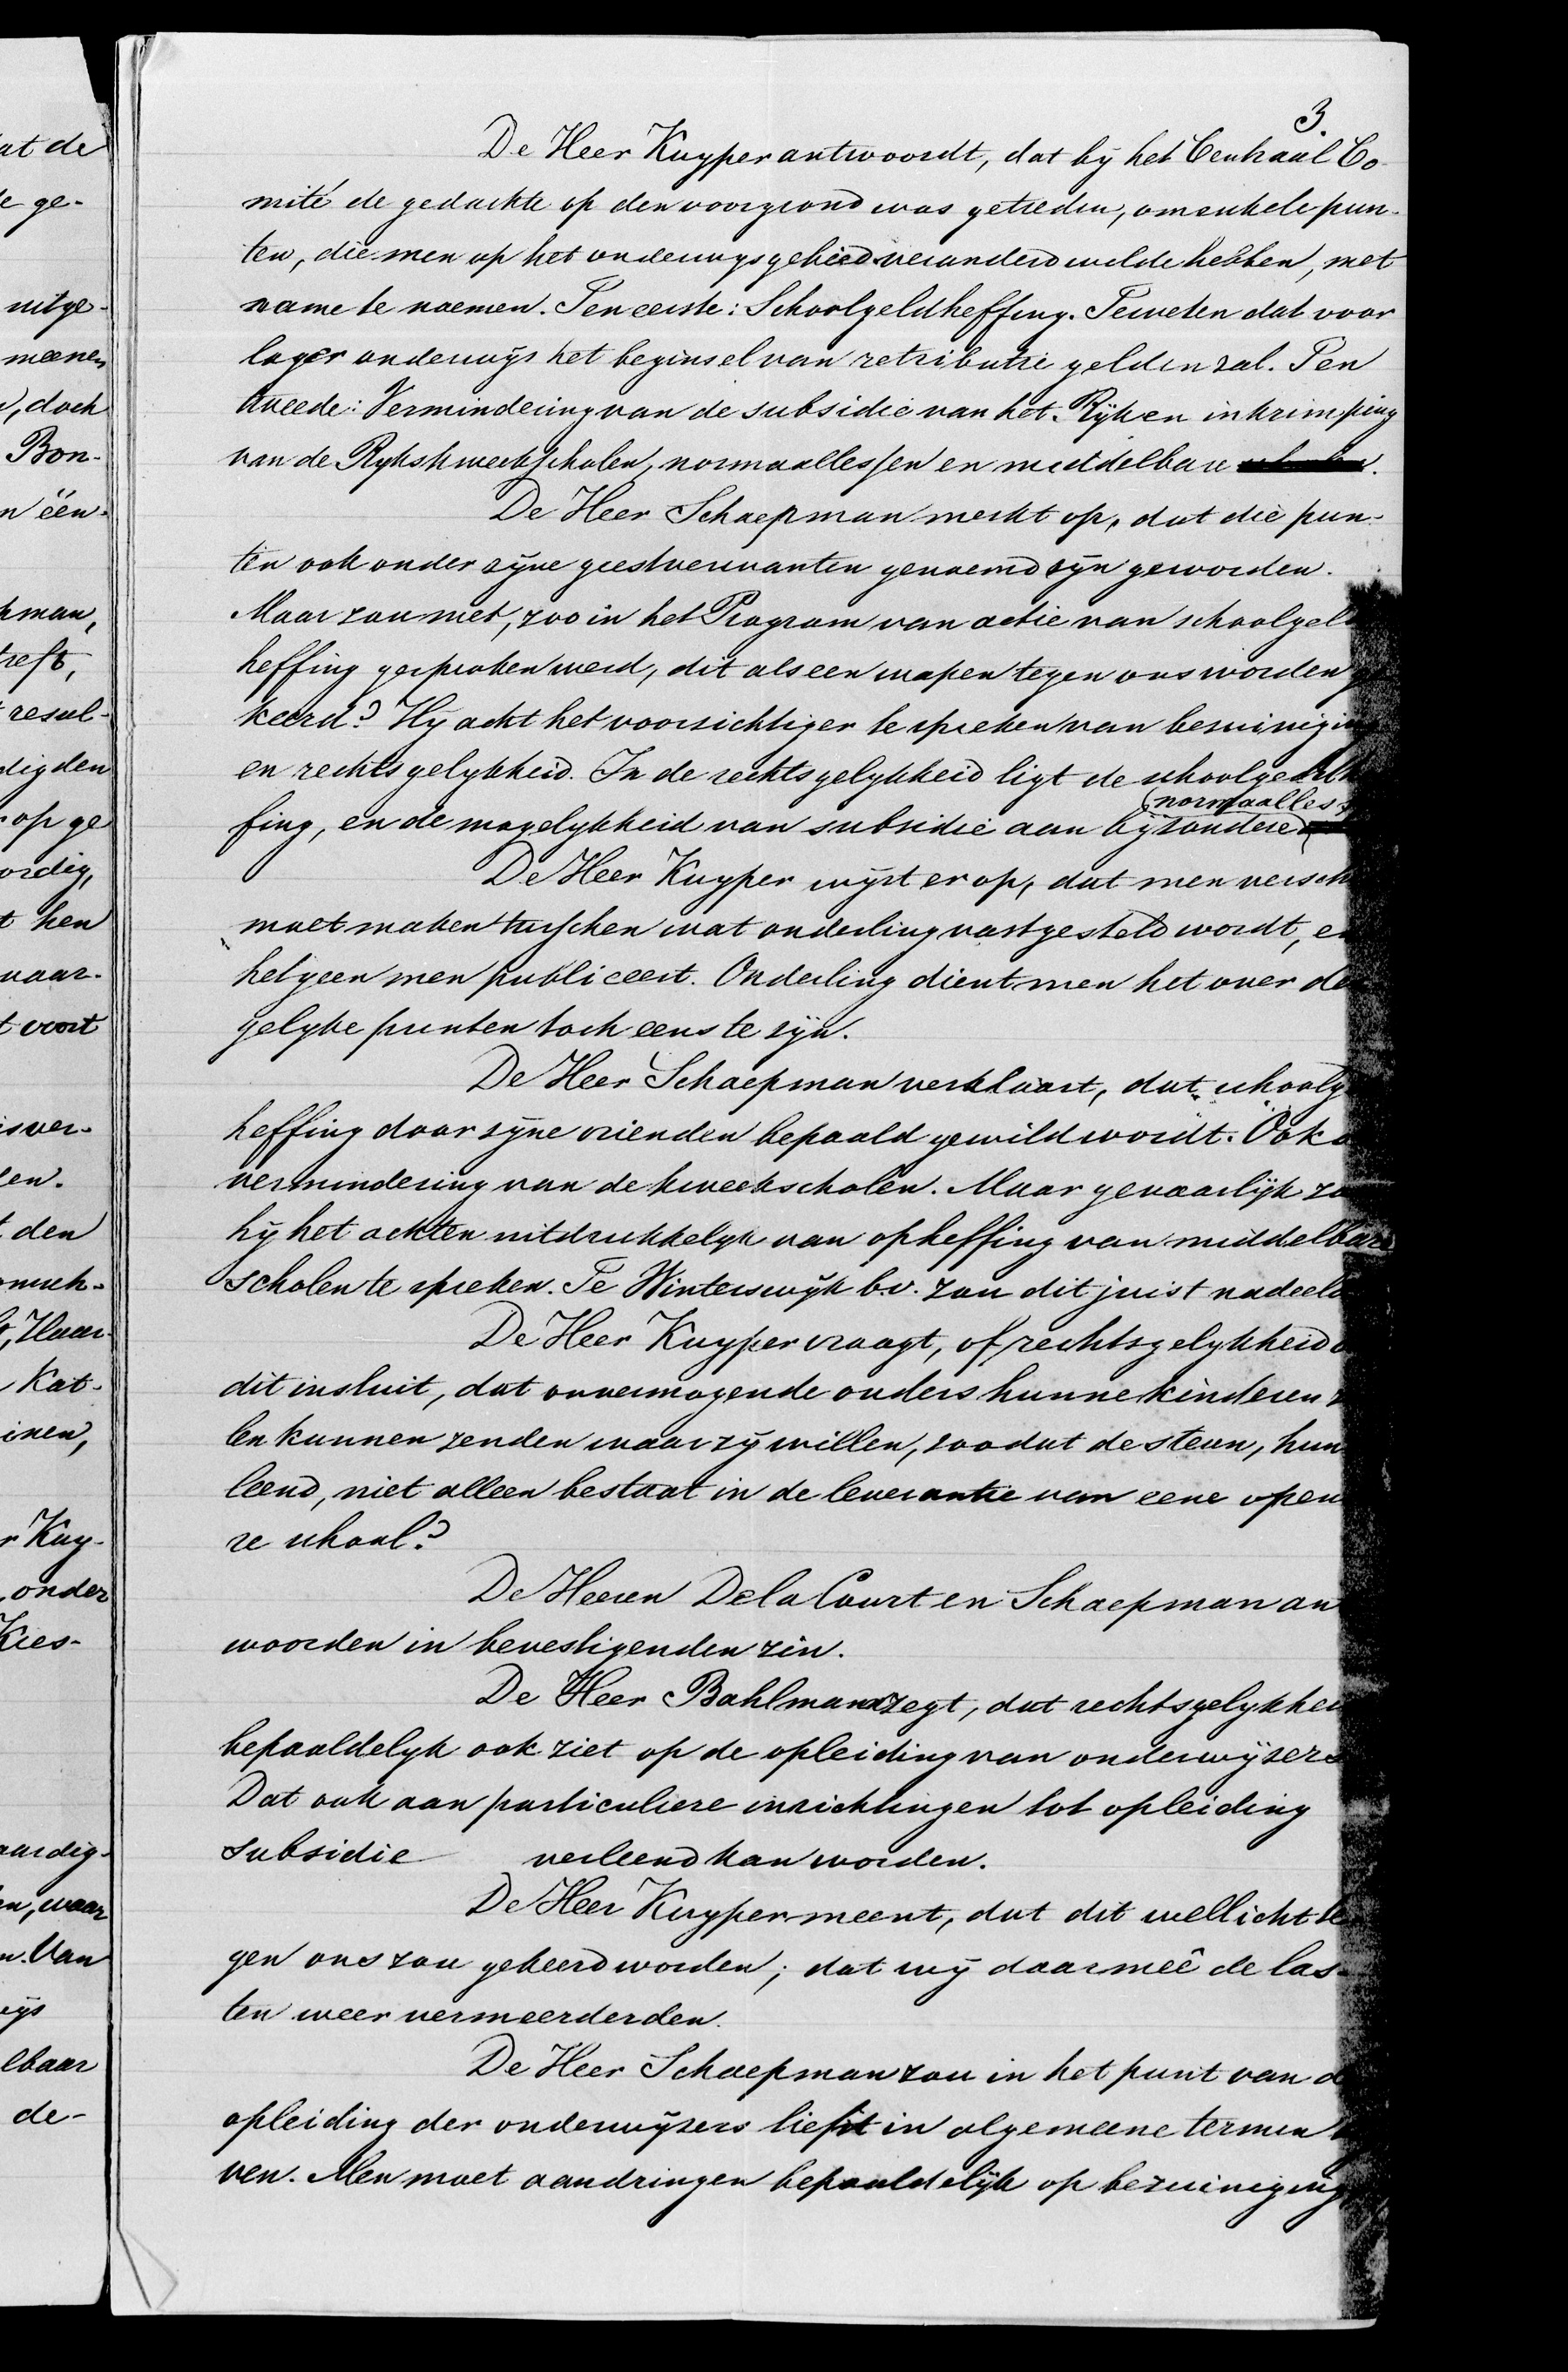 3.
De Heer Kuyper antwoordt, dat by het Centraal Co-
mité de gedachte op den voorgrond was getreden, om enkele pun-
ten, die men op het onderwysgebied veranderd wilde hebben, met
name te noemen. Ten eerste: Schoolgeldheffing. Te weten dat voor
lager onderwijs het beginsel van retributie gelden zal. Ten
tweede: Vermindering van de subsidie van het Rijk en inkrimping
van de Rykskweekscholen, normaallessen en middelbare
De Heer Schaepman merkt op, dat die pun-
ten ook onder zyne geestverwanten genoemd zyn geworden.
Maar zou niet, zoo in het Program van actie van schoolgeld
heffing gesproken werd, dit als een wapen tegen ons worden g
keerd? Hy acht het voorzichtiger te spreken van bezuiniging
en rechtsgelykheid. In de rechtsgelykheid ligt de schoolgeldh
normaalless
fing, en de mogelykheid van subsidie aan bijzondere
De Heer Kuyper wijst er op, dat men versch
moet maken tusschen wat onderling vastgesteld wordt, en
hetgeen men publiceert. Onderling dient men het over de
gelyke punten toch eens te zyn.
De Heer Schaepman verklaart, dat schoolg
heffing door zyne vrienden bepaald gewild wordt. Ook
vermindering van de kweekscholen. Maar gevaarlijk zo
hy het achten uitdrukkelyk van opheffing van middelbare
scholen te spreken. Te Winterswijk b.v. zou dit juist nadeel
De Heer Kuyper vraagt, of rechtsgelykheid
dit insluit, dat onvermogende ouders hunne kinderen z
len kunnen zenden waar zy willen, zoodat de steun, hun
leend, niet alleen bestaat in de leverantie van eene open
re school?
De Heeren De la Court en Schaepman an
woorden in bevestigenden zin.
De Heer Bahlmann zegt, dat rechtsgelykhei
bepaaldelyk ook ziet op de opleiding van onderwijzers
Dat ook aan particuliere inrichtingen tot opleiding
subsidie verleend kan worden.
De Heer Kuyper meent, dat dit wellicht te
gen ons zou gekeerd worden; dat wy daarmeê de las-
ten weer vermeerderden.
De Heer Schaepman zou in het punt van d
opleiding der onderwyzers liefst in algemeene termen
ven. Men moet aandringen bepaaldelijk op bezuiniging
at de
e ge-
uitge-
meenen
, doch
Bon-
n één-
pman,
treft,
resul-
digden
op ge
ordig,
t hen
waar-
t voort
isver-
den
Haar-
Kat-
r Kuy-
onder
Kies-
aardig-
en, waar
n. Van
ijs
elbaar
de-